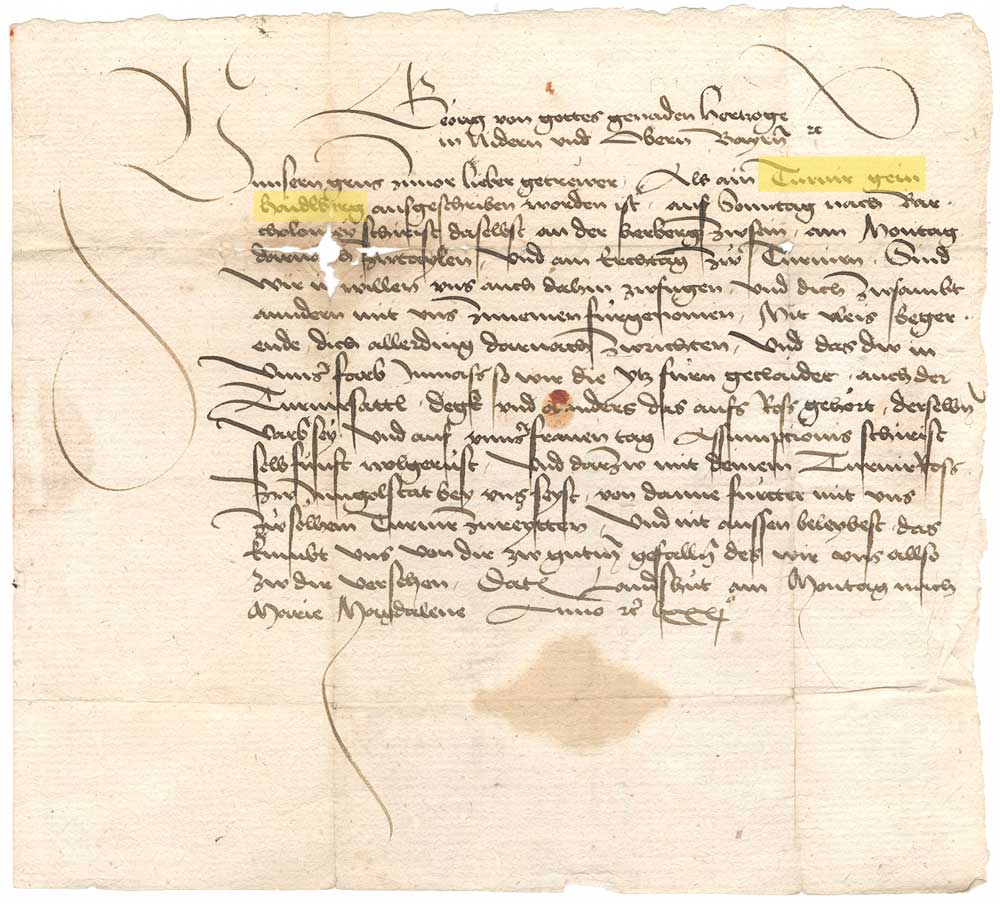 Georg von gottes genaden Hertzoge
in Nidern und Obern Bayrn̄ ꝛc
unsern grus zuvor lieber getrewer, Als ain Turnir gein
haidlberg ausgeschriben worden ist, auf Sonntag nach Bar-
tholomey schirist daselbst an der herberg zusein, am Montag
zutaylen, Und am Erchtag zu Turniern, Sind
wir willen uns auch dahin zufugen, und dich zusambt
anndern mit uns zunemen fürgenomen, Mit vleis beger-
ende, dich allerding darnach zurichten, Und das dw in
unns̄ farb Inmass so wir die ytz fürn geclaidet, auch der
Turnirsattl, degk und annders das aufs Ross gehört, derselbn̄
varb sey, Und auf unns̄ frauen tag Assumptionis schirist
selbfünft wolgerüst, Und darzw mit deinem Turnir Ross
zw Inngelstat bey uns seyst, von danne fürtter mit uns
zu solhem Turnir zureytten, Und nit aussen beleybest, das
kumbt uns von dir zw gutm̄ gefalln̄ des wir uns allso
zw dir versehen, Datl̄ Landshut am Montag nach
Marie Magdalene Anno ꝛc lxxxj